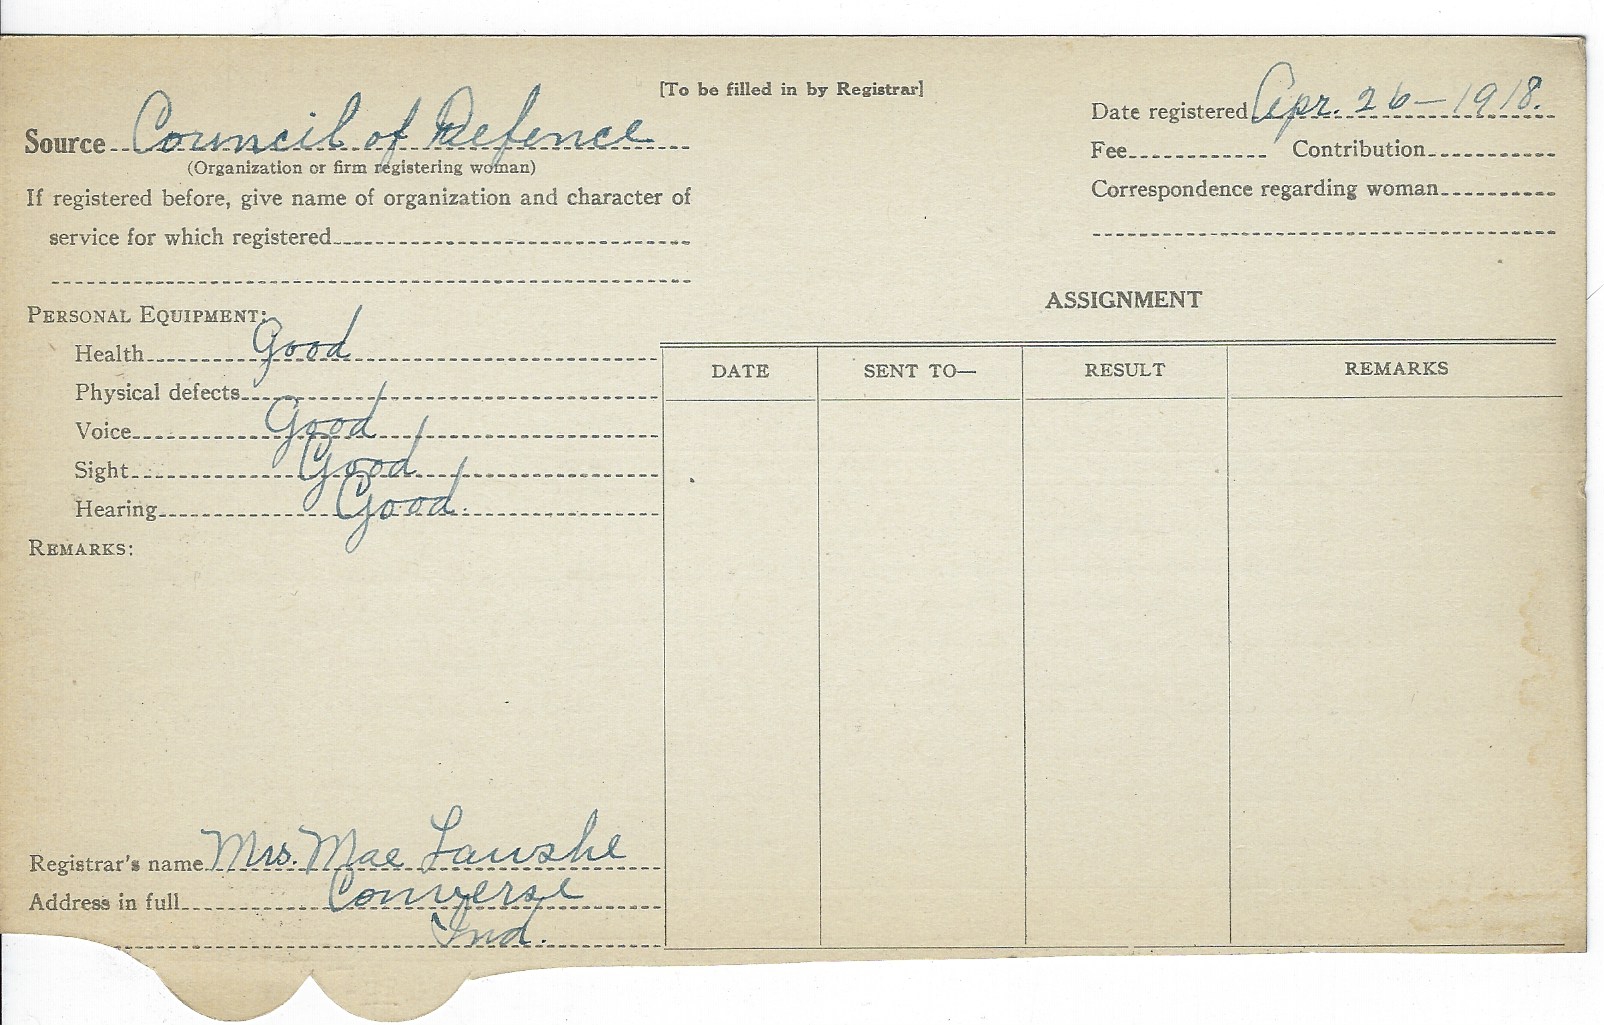 [To be filled in by Registrar]
Source Council of Defence
(Organization or firm registering woman)
If registered before, give name of organization and character of
service for which registered
Date registered Apr. 26 - 1918.
Fee Contribution
Correspondence regarding woman
PERSONAL EQUIPMENT:
Health Good
Physical defects
Voice Good
Sight Good
Hearing Good.
REMARKS:
ASSIGNMENT
DATE SENT TO— RESULT REMARKS
Registrar's name Mrs. Mae Laushe
Address in full Converse
Ind.